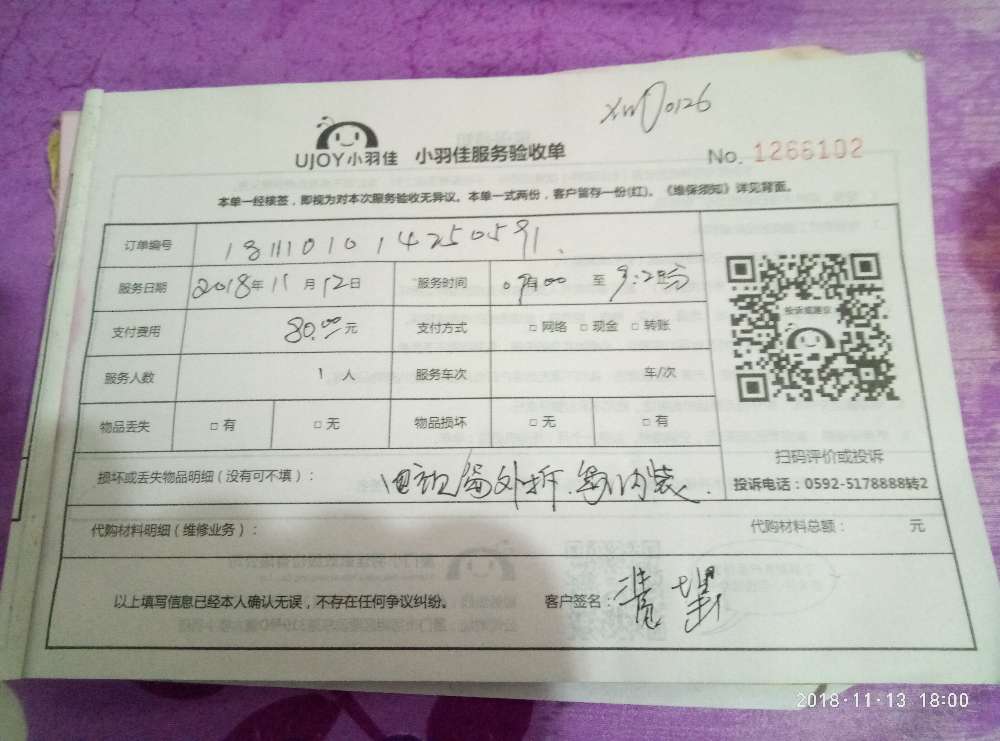 UJOY小羽佳 小羽佳服务验收单
No. 1266102
本单一经核签，即视为对本次服务验收无异议。本单一式两份，客户留存一份(红)。《维保须知》详见背面。
订单编号 1811101014250591
服务日期 2018年11月12日 服务时间 至
支付费用 80.00元 支付方式 □网络 □现金 □转账
服务人数 1人 服务车次 车/次
物品丢失 □有 □无 物品损坏 □无 □有
投诉或建议
扫码评价或投诉
投诉电话：0592-5178888转2
损坏或丢失物品明细（没有可不填）： 外拆 内装
代购材料明细（维修业务）： 代购材料总额： 元
以上填写信息已经本人确认无误，不存在任何争议纠纷。 客户签名：
2018·11·13 18:00